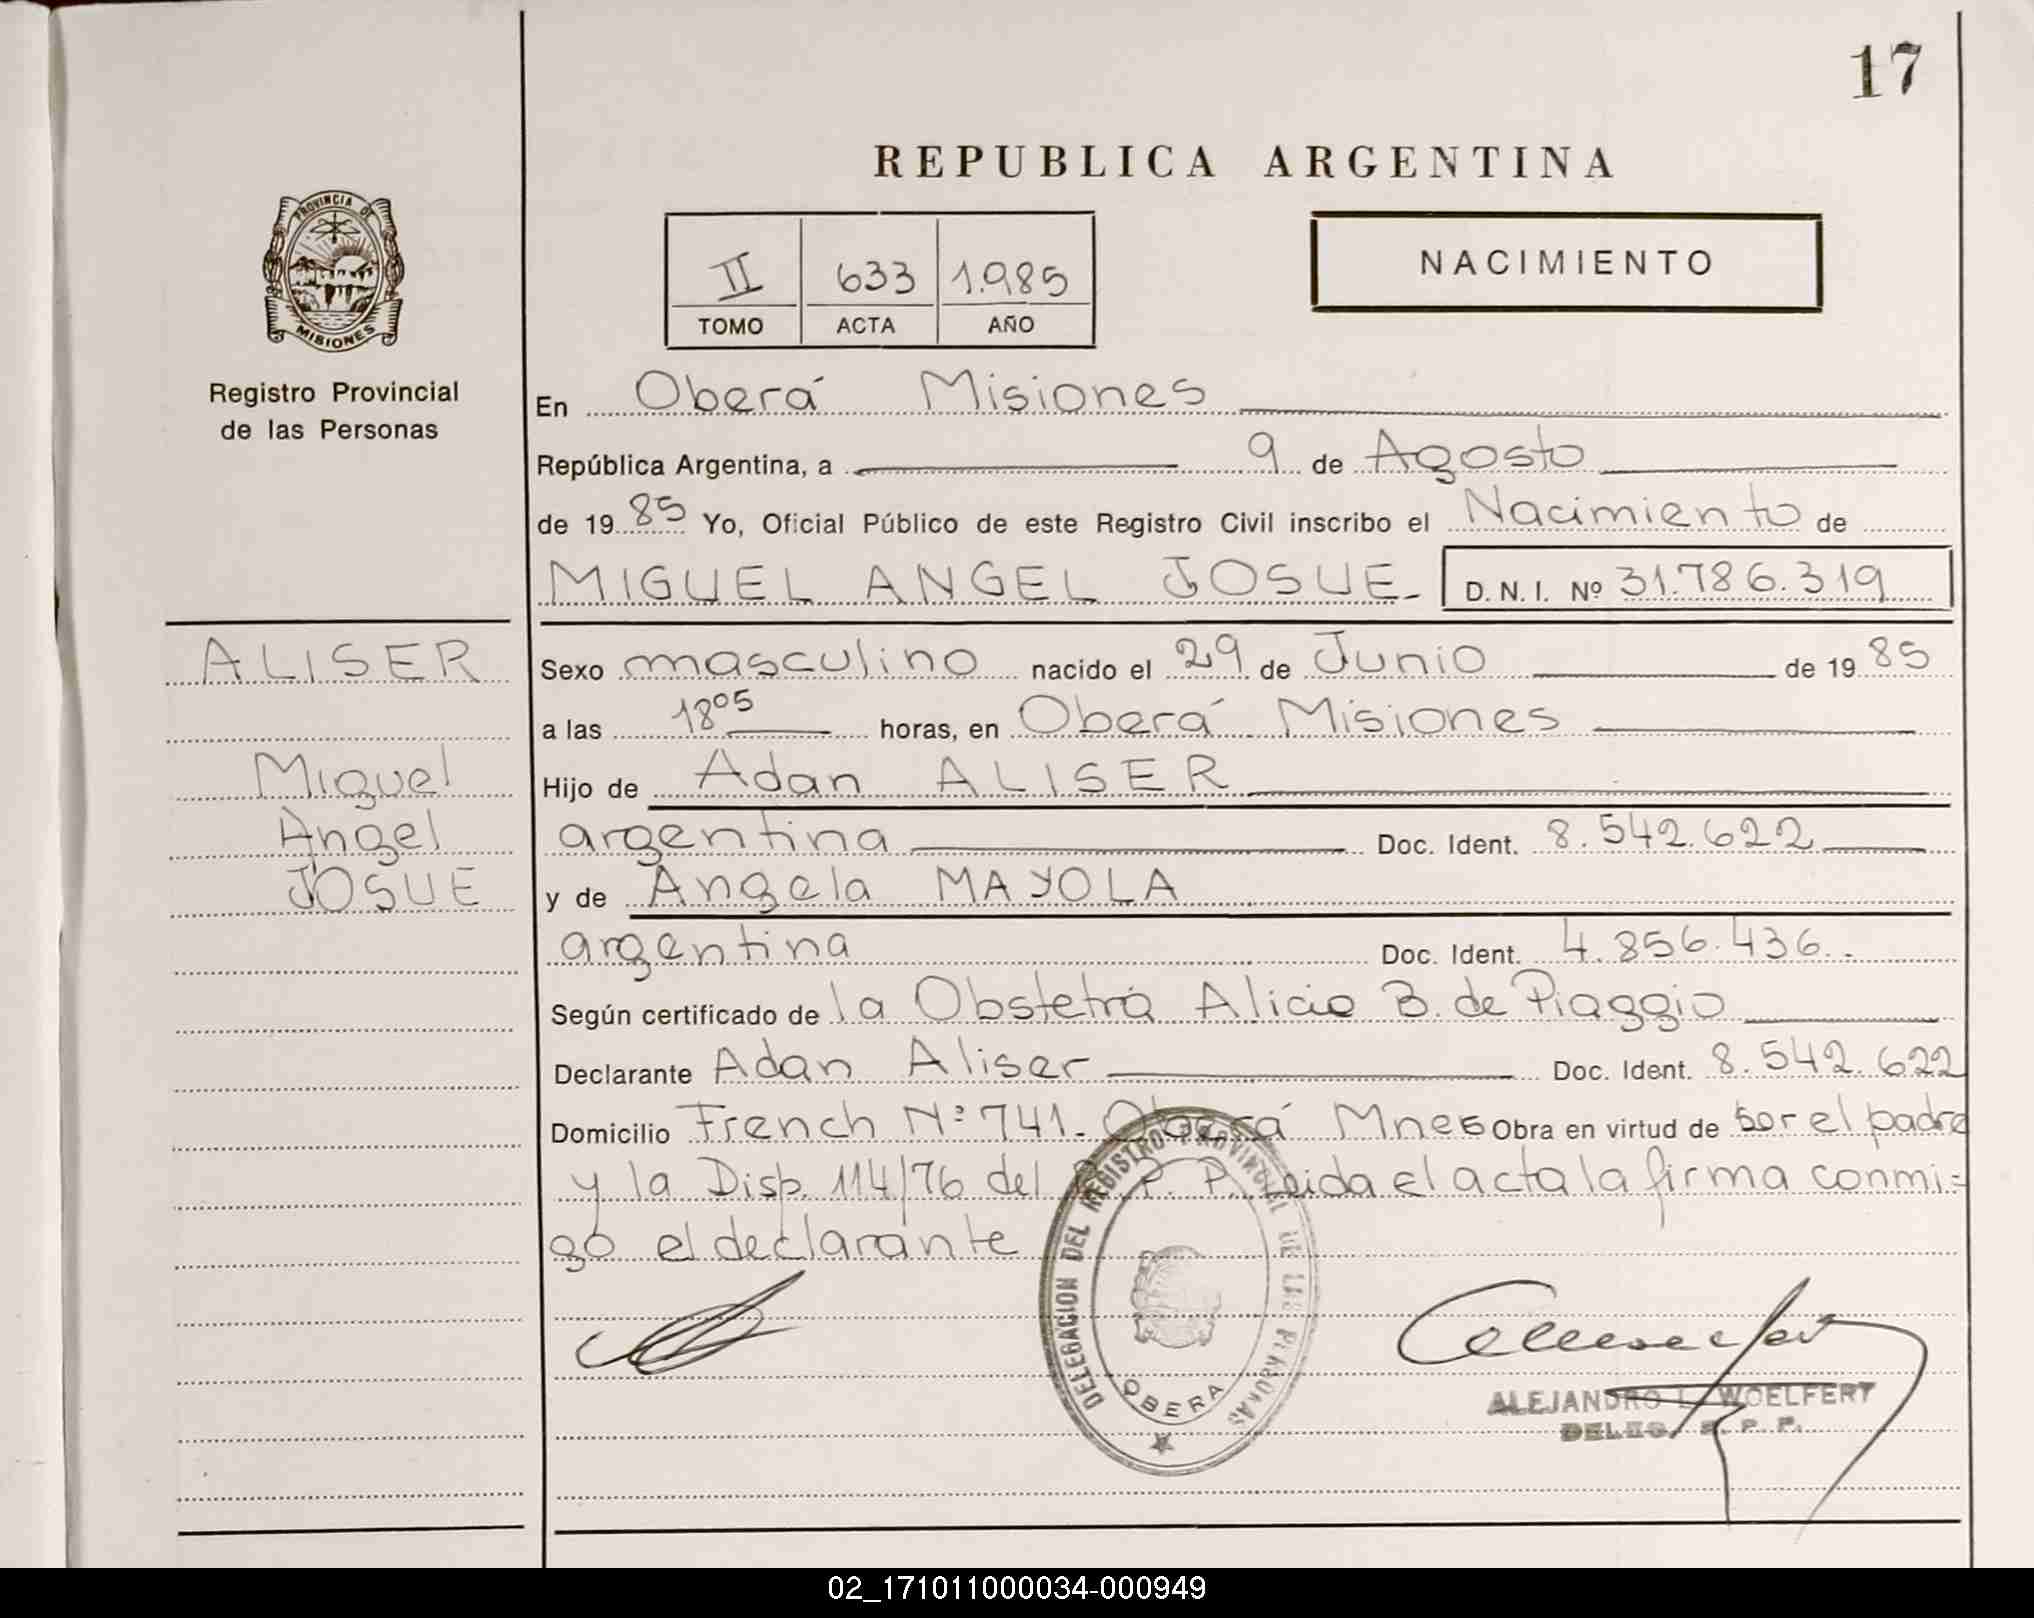 17
REPUBLICA ARGENTINA
PROVINCIA DE
MISIONES
II 633 1.985
TOMO ACTA AÑO
NACIMIENTO
Registro Provincial
de las Personas
En Oberá Misiones
República Argentina, a 9 de Agosto
de 19 85 Yo, Oficial Público de este Registro Civil inscribo el Nacimiento de
MIGUEL ANGEL JOSUE- D. N. I. Nº 31.786.319
ALISER
Sexo masculino nacido el 29 de Junio de 19 85
a las 18⁰⁵ horas, en Oberá Misiones
Miguel
Hijo de Adan ALISER
Angel
argentina Doc. Ident. 8.542.622
JOSUE
y de Angela MAYOLA
argentina Doc. Ident. 4.856.436.
Según certificado de la Obstetrá Alicia B. de Piaggio
Declarante Adan Aliser Doc. Ident. 8.542.622
Domicilio French Nº 741- Oberá Mnes Obra en virtud de ser el padre
y la Disp. 114/76 del R. P. P. Leida el acta la firma conmi=
go el declarante
DELEGACION DEL REGISTRO PROVINCIAL DE LAS PERSONAS
OBERA
ALEJANDRO L. WOELFERT
DELEG. R. P. P.
02_171011000034-000949